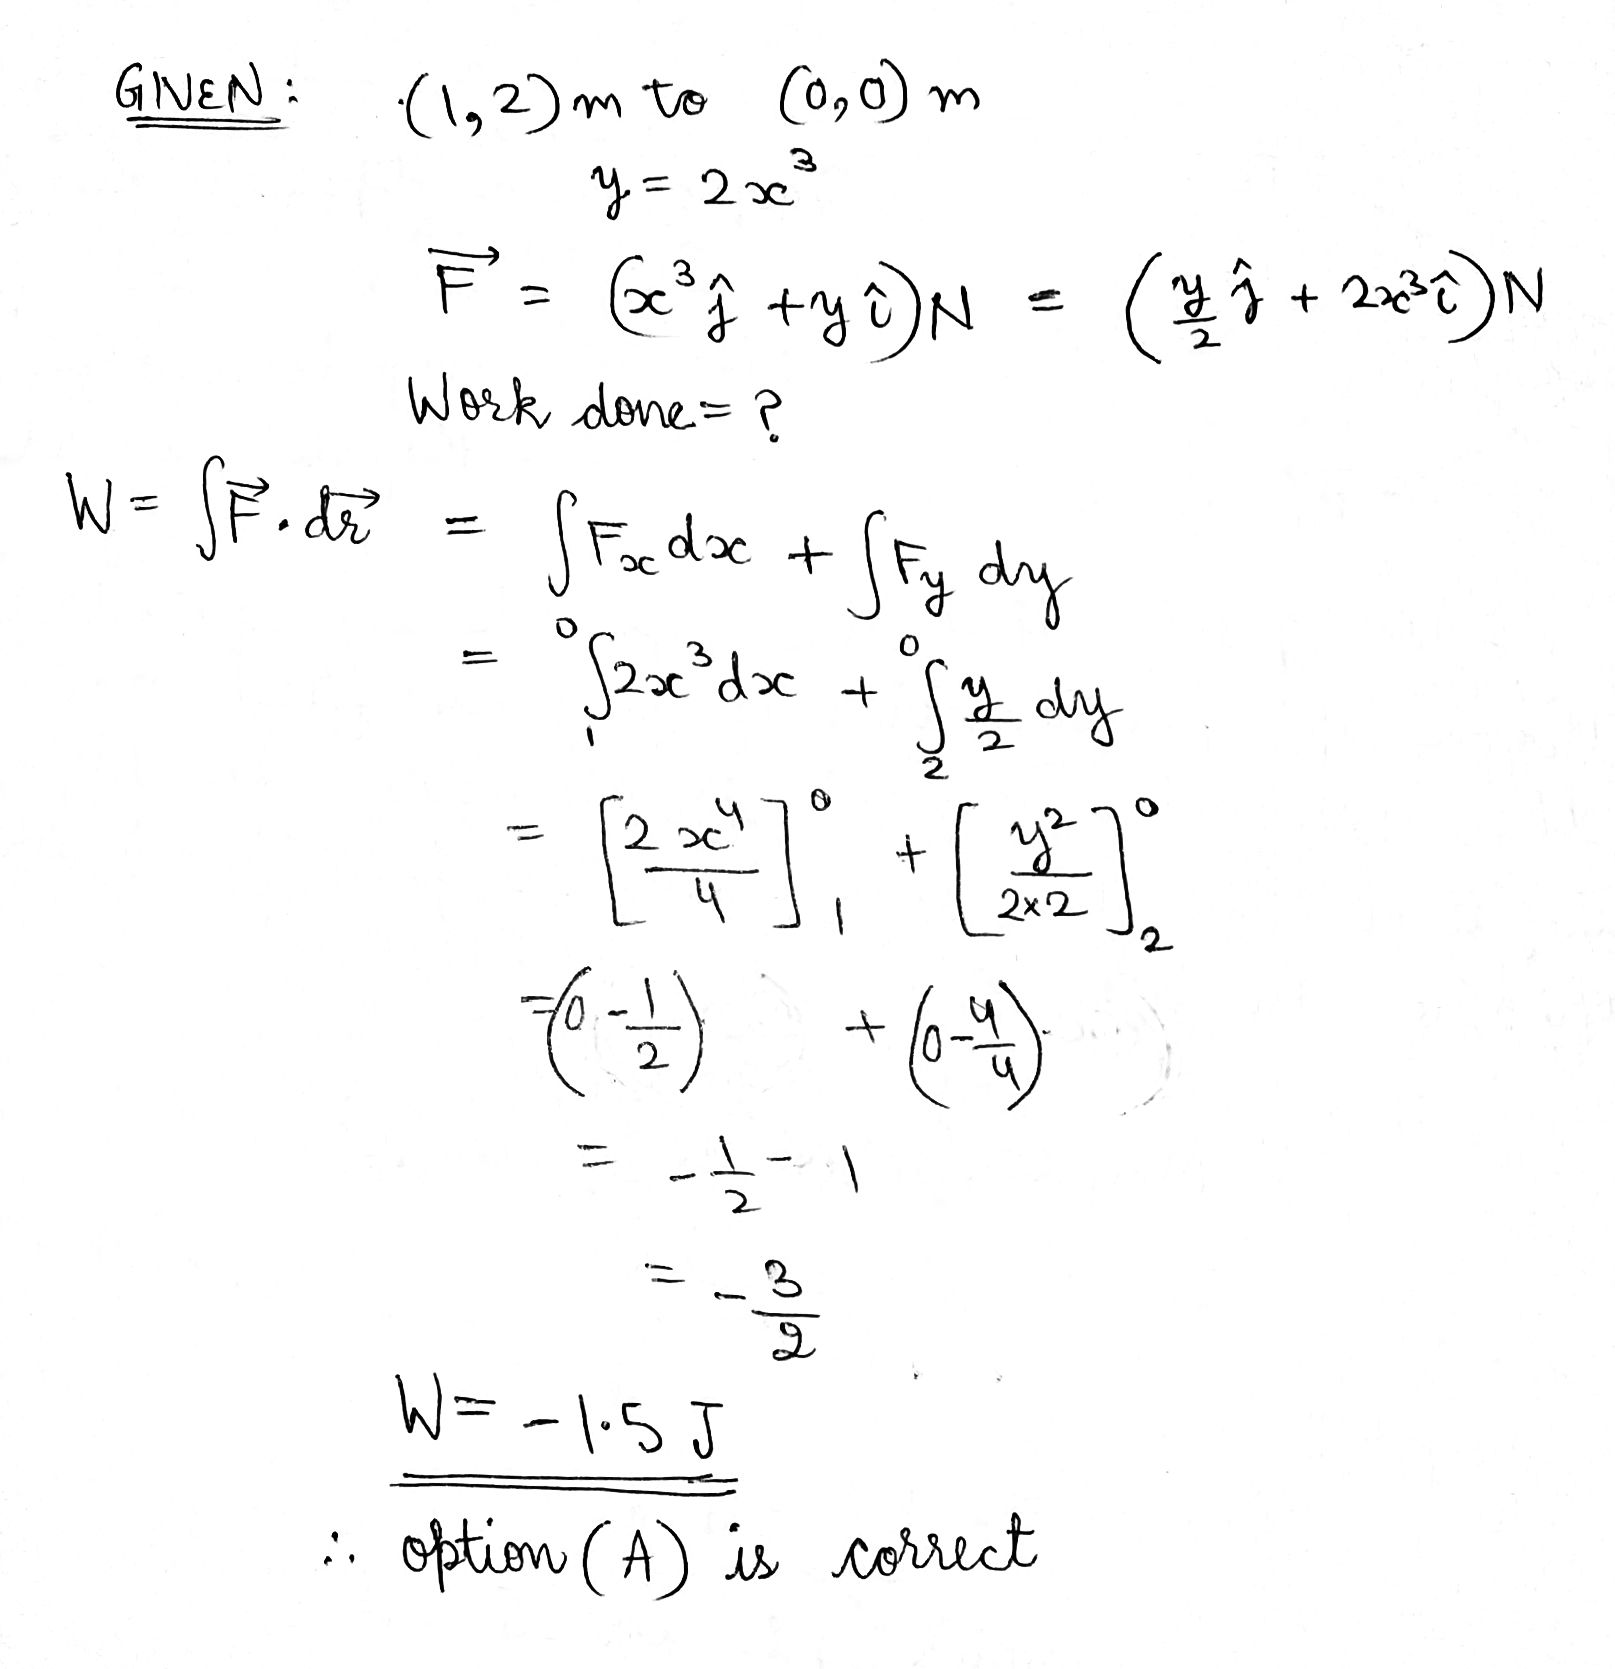 GIVEN: (1,2) m to (0,0) m
y = 2x³
F⃗ = (x³ĵ + yî)N = (y/2 ĵ + 2x³î)N
Work done = ?
W = ∫F⃗.dr⃗ = ∫Fₓdx + ∫F_y dy
= ₁∫⁰2x³dx + ₂∫⁰ y/2 dy
= [2x⁴/4]₁⁰ + [y²/2×2]₂⁰
= (0 - 1/2) + (0 - 4/4)
= - 1/2 - 1
= - 3/2
W = - 1.5 J
∴ option (A) is correct